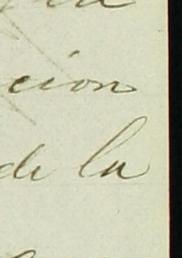 cion
de la